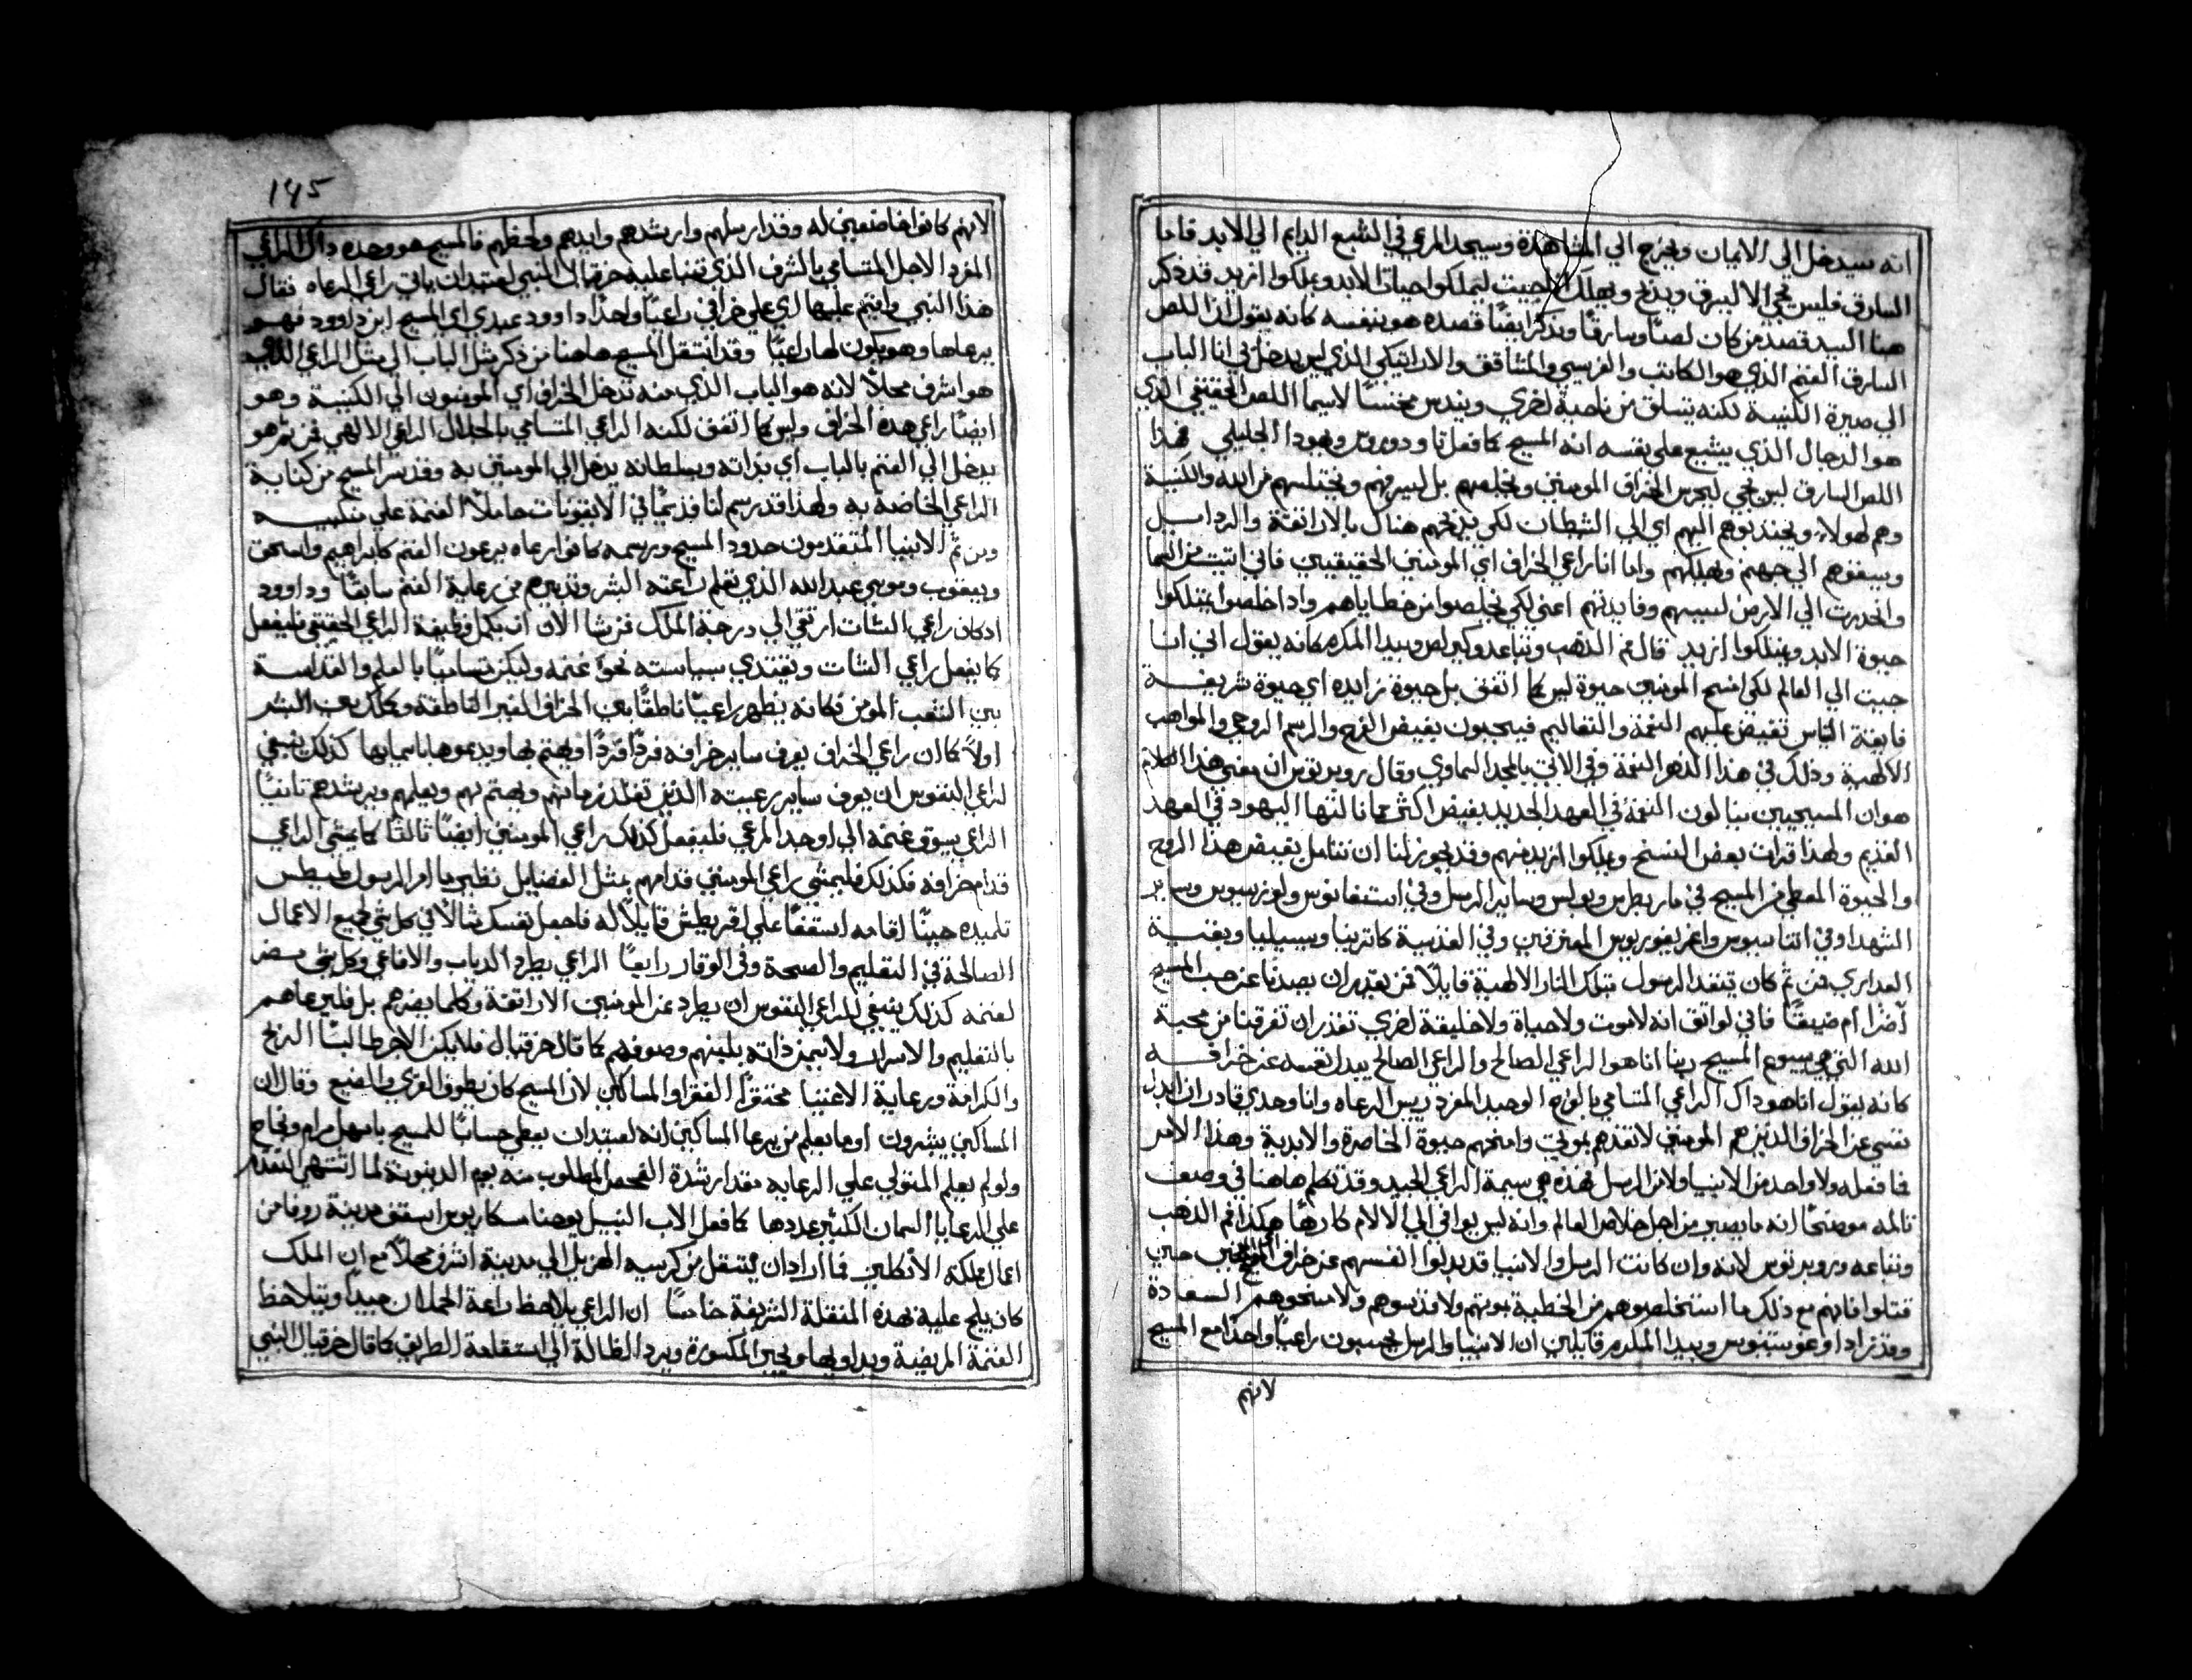 انه سيدخل الي الايمان ويخرج الي المشاهدة وسيجد المرعي في الشبع الدايم الي الابد فاما
السارق فليس يجي الا ليسرق ويذبح ويهلك انا جيت ليملكوا حياة الابد ويملكوا ازيد قد ذكر
هنا السيد قصد من كان لصا وسارقا ويذكر ايضا قصده هو بنفسه كانه يقول ان اللص
السارق الغنم الذي هو الكاتب والفريسي والمنافق والاراتيكي الذي ليس يدخل بي انا الباب
الي صيرة الكنيسة لكنه يتسلق من ناحية اخري ويندس مختلسا لاسيما اللص الحقيقي الذي
هو الدجال الذي يشيع علي نفسه انه المسيح كما فعل تاودوروس ويهودا الجليلي فهذا
اللص السارق ليس يجي ليحرس الخراف المومنين ويخلصهم بل ليسرقهم ويختلسهم من الله والكنيسة
وهم لهولاء ويجتذبوهم اليهم اي الي الشيطان لكي يذبحهم هناك بالاراتقة والرذايل
ويسقوهم الي جهنم ويهلكهم واما انا راعي الخراف اي المومنين الحقيقيين فاني اتيت من السما
وانحدرت الي الارض لسببهم وفايدتهم اعني لكي يخلصوا من خطاياهم واذا خلصوا يمتلكوا
حيوة الابد ويمتلكوا ازيد قال فم الذهب وتباعه وكيرلص وبيدا المكرم كانه يقول اني انا
جيت الي العالم لكي امنح المومنين حيوة ليس كما اتفق بل حيوة زايده اي حيوة شريفة
فايقة الناس تفيض عليهم النعمة والتعاليم فيحبون بفيض الفرح والرسم الروحي والمواهب
الالهية وذلك في هذا الدهر النعمة وفي الاتي بالمجد السماوي وقال روبرتوس ان معني هذا الكلام
هو ان المسيحيين ينالون النعمة في العهد الجديد بفيض اكثر مما نالتها اليهود في العهد
القديم ولهذا قرات بعض النسخ ويملكوا ازيد منهم وقد يجوز لنا ان نتامل بفيض هذا الروح
والحيوة المعطي من المسيح في مار بطرس وبولس وساير الرسل وفي استفانوس ولورنسيوس وساير
الشهدا وفي اتناسيوس واغريغوريوس المعترفين وفي القديسة كاترينا وسيسيليا وبقية
العداري فمن ثم كان يتقد الرسول بتلك النار الالهية قايلا فمن يقدر ان يصدنا عن حب المسيح
اضرا ام ضيقا فاني لواثق انه لاموت ولاحياة ولاخليقة اخري تقدر ان تفرقنا من محبة
الله التي هي بيسوع المسيح ربنا انا هو الراعي الصالح والراعي الصالح يبدل نفسه عن خرافه
كانه يقول انا هو ذاك الراعي المتسامي بالنوع الوحيد المفرد ريس الرعاه وانا وحدي قادر ان ابدل
نفسي عن الخراف الدين هم المومنين لانقذهم بموتي وامنحهم حيوة الحاضرة والابدية وهذا الامر
فما فعله ولا واحد من الانبيا ولا من الرسل فهذه هي سيمة الراعي الجيد وقد تكلم هاهنا في وصف
تالمه موضحا انه مايصير من اجل خلاص العالم وانه ليس يوافي الي الالام كارها هكذا فم الذهب
وتباعه وروبرتوس لانه وان كانت الرسل والانبيا قد بدلوا انفسهم عن خراف المسيح حين
قتلوا فانهم مع ذلك ما استخلصوهم من الخطية بموتهم ولا قدسوهم ولا منحوهم السعادة
وقد زاد اوغوستينوس وبيدا المكرم قايلين ان الانبيا والرسل يحسبون راعيا واحدا مع المسيح
لانهم
١٤٥
لانهم كانوا خاضعين له وقد ارسلهم وارشدهم وايدهم وحفظهم فالمسيح هو وحده ذاك الراعي
المفرد الاجل المتسامي بالشرف الذي تنبا عليه حزقيال النبي اعتيد ان ياتي راعي الرعاه فقال
هذا النبي واقيم عليها اي علي خرافي راعيا واحدا داوود عبدي اي المسيح ابن داوود فهو
يرعاها وهو يكون لها راعيا وقد انتقل المسيح هاهنا من ذكر مثل الباب الي مثل الراعي الذي
هو اشرف محلا لانه هو الباب الذي منه تدخل الخراف اي المومنون الي الكنيسة وهو
ايضا راعي هذه الخراف وليس كما اتفق لكنه الراعي المتسامي بالجلال الراعي الالهي فمن ثم هو
يدخل الي الغنم بالباب اي بذاته وبسلطانه يدخل الي المومنين به وقد سر المسيح من كناية
الراعي الخاصة به ولهذا قد رسم لنا قديما في الايقونات حاملا الغنمة علي منكبيه
ومن ثم الانبيا المتقدمون حدود المسيح ورسمه كانوا رعاه يرعون الغنم كابراهيم واسحق
ويعقوب وموسي عبد الله الذي تعلم رعية البشر وتدبيرهم من رعاية الغنم سابقا وداوود
اذ كان راعي الشات ارتقي الي درجة الملك فمن شا الان ان يكمل وظيفة الراعي الحقيقي فليفعل
كما يفعل راعي الشات ويقتدي بسياسته نحو غنمه وليكن متساميا بالعلم والقداسة
بين الشعب المومن فكانه يظهر راعيا ناطقا بين الخراف الغير الناطقة
اولا كما ان راعي الخراف يعرف ساير خرافه فردا فردا ويهتم بها ويدعوها باسمايها كذلك ينبغي
لراعي النفوس ان يعرف ساير رعيته الذين تقلد زمامهم ويهتم بهم ويعلمهم ويرشدهم ثانيا
الراعي يسوق غنمه الي اوحد المرعي فليفعل كذلك راعي المومنين ايضا ثالثا كما يمشي الراعي
قدام خرافه فكذلك فليمشي راعي المومنين قدامهم بمثل الفضايل نظير ما امر الرسول طيطس
تلميذه حينما اقامه اسقفا علي اقريطش قايلا له فاجعل نفسك مثالا في كل شي لجميع الاعمال
الصالحة في التعليم والصحة وفي الوقار رابعا الراعي يطرد الدياب والافاعي وكل شي مضر
لغنمه كذلك ينبغي للراعي النفوس ان يطرد عن المومنين الاراتقة وكلما يضرهم بل فليرعاهم
بالتعليم والاسرار ولا يسمن ذاته بلبنهم وصوفهم كما قال حزقيال فلا يكن الاجر طالبا الربح
والكرامة ورعاية الاغنيا محتقرا الفقرا والمساكين لان المسيح كان يطوف القري والضيع وقال ان
المساكين يبشرون اوما يعلم من يرعا المساكين انه لعتيد ان يعطي حسابا للمسيح باسهل مرام ونجاح
ولو لم يعلم المتولي علي الرعايه مقدار شدة الفحص المطلوب منه يوم الدينونة لما اشتهي التقدم
علي الرعايا السمان الكثير عددها كما فعل الاب النبيل يوحنا مسكاريوس اسقف مدينة روفا من
اعمال مملكة الانكليز فما اراد ان ينتقل من كرسيه الهزيل الي مدينة اشرف محلا مع ان الملك
كان يلج عليه بهذه النقلة الشريفة خامسا ان الراعي يلاحظ راعة الحملان جيدا ويتلاحظ
الغنمة المريضة ويداويها ويجبر المكسورة ويرد الظالة الي استقامة الطريق كما قال حزقيال النبي